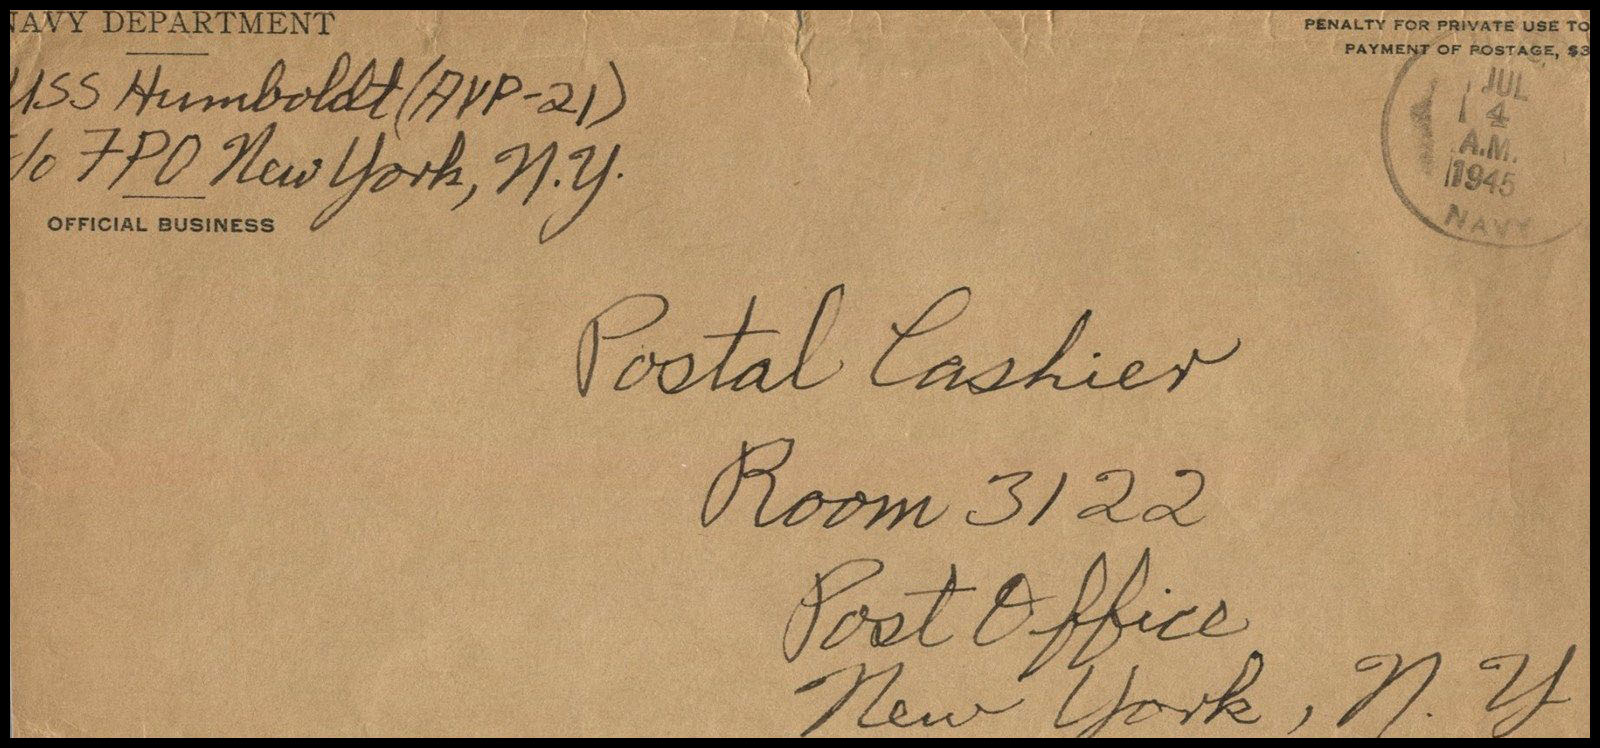 NAVY DEPARTMENT
USS Humboldt (AVP-21)
c/o FPO New York, N.Y.
OFFICIAL BUSINESS
PENALTY FOR PRIVATE USE TO
PAYMENT OF POSTAGE, $3
JUL
4
A.M.
1945
NAVY
Postal Cashier
Room 3122
Post Office
New York, N. Y